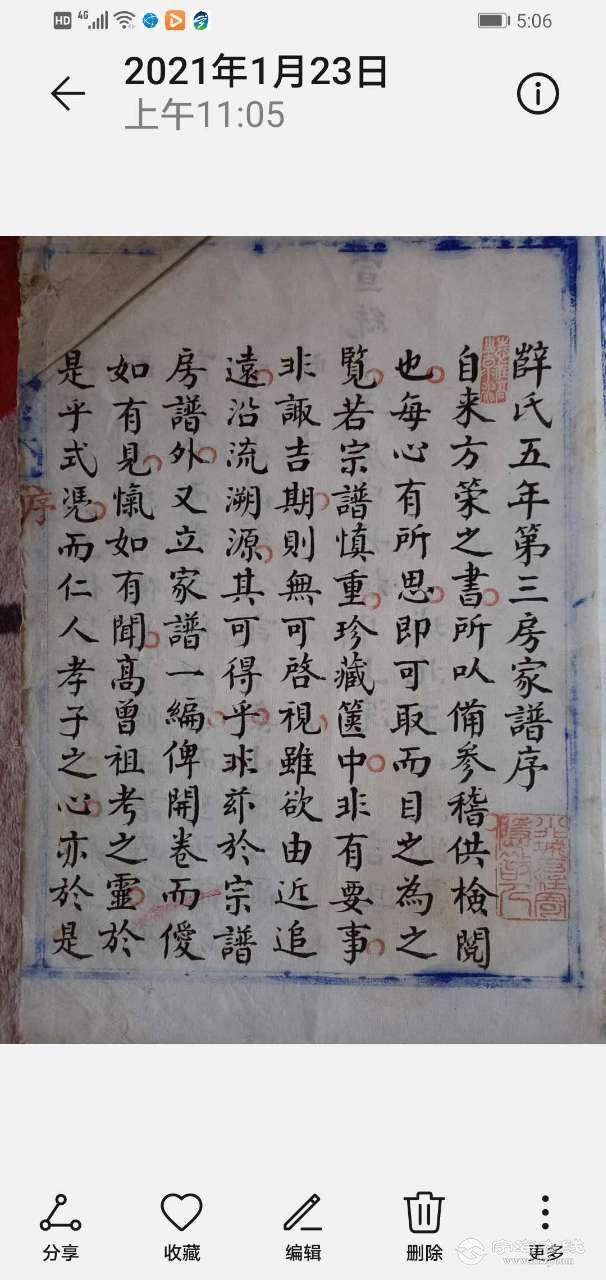 HD 4G 5:06
2021年1月23日
上午11:05
薛氏五年第三房家譜序
自来方策之書所以備參稽供檢閱
也每心有所思即可取而目之為之
覽若宗譜慎重珍藏篋中非有要事
非諏吉期則無可啓視雖欲由近追
遠沿流溯源其可得乎非茆於宗譜
房譜外又立家譜一編俾開卷而僾
如有見愾如有聞高曾祖考之靈於
是乎式憑而仁人孝子之心亦於是
序
分享
收藏
编辑
删除
更多